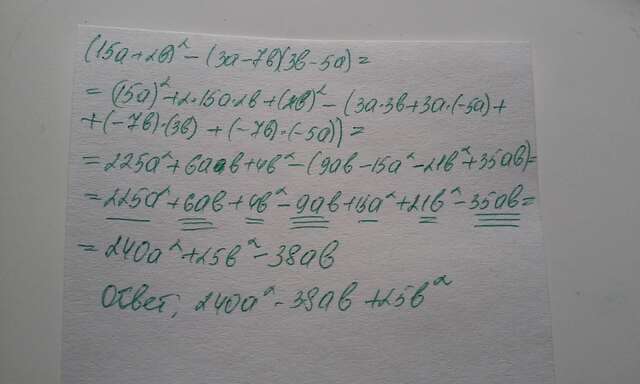 (15a+2b)² - (3a-7b)(3b-5a)=
= (15a)²+2·15a·2b+(2b)² - (3a·3b+3a·(-5a)+
+(-7b)·(3b) + (-7b)·(-5a))=
= 225a²+6ab+4b² - (9ab-15a²-21b²+35ab)=
= 225a²+6ab+4b²-9ab+15a²+21b²-35ab=
= 240a²+25b²-38ab
Ответ: 240a²-38ab+25b²